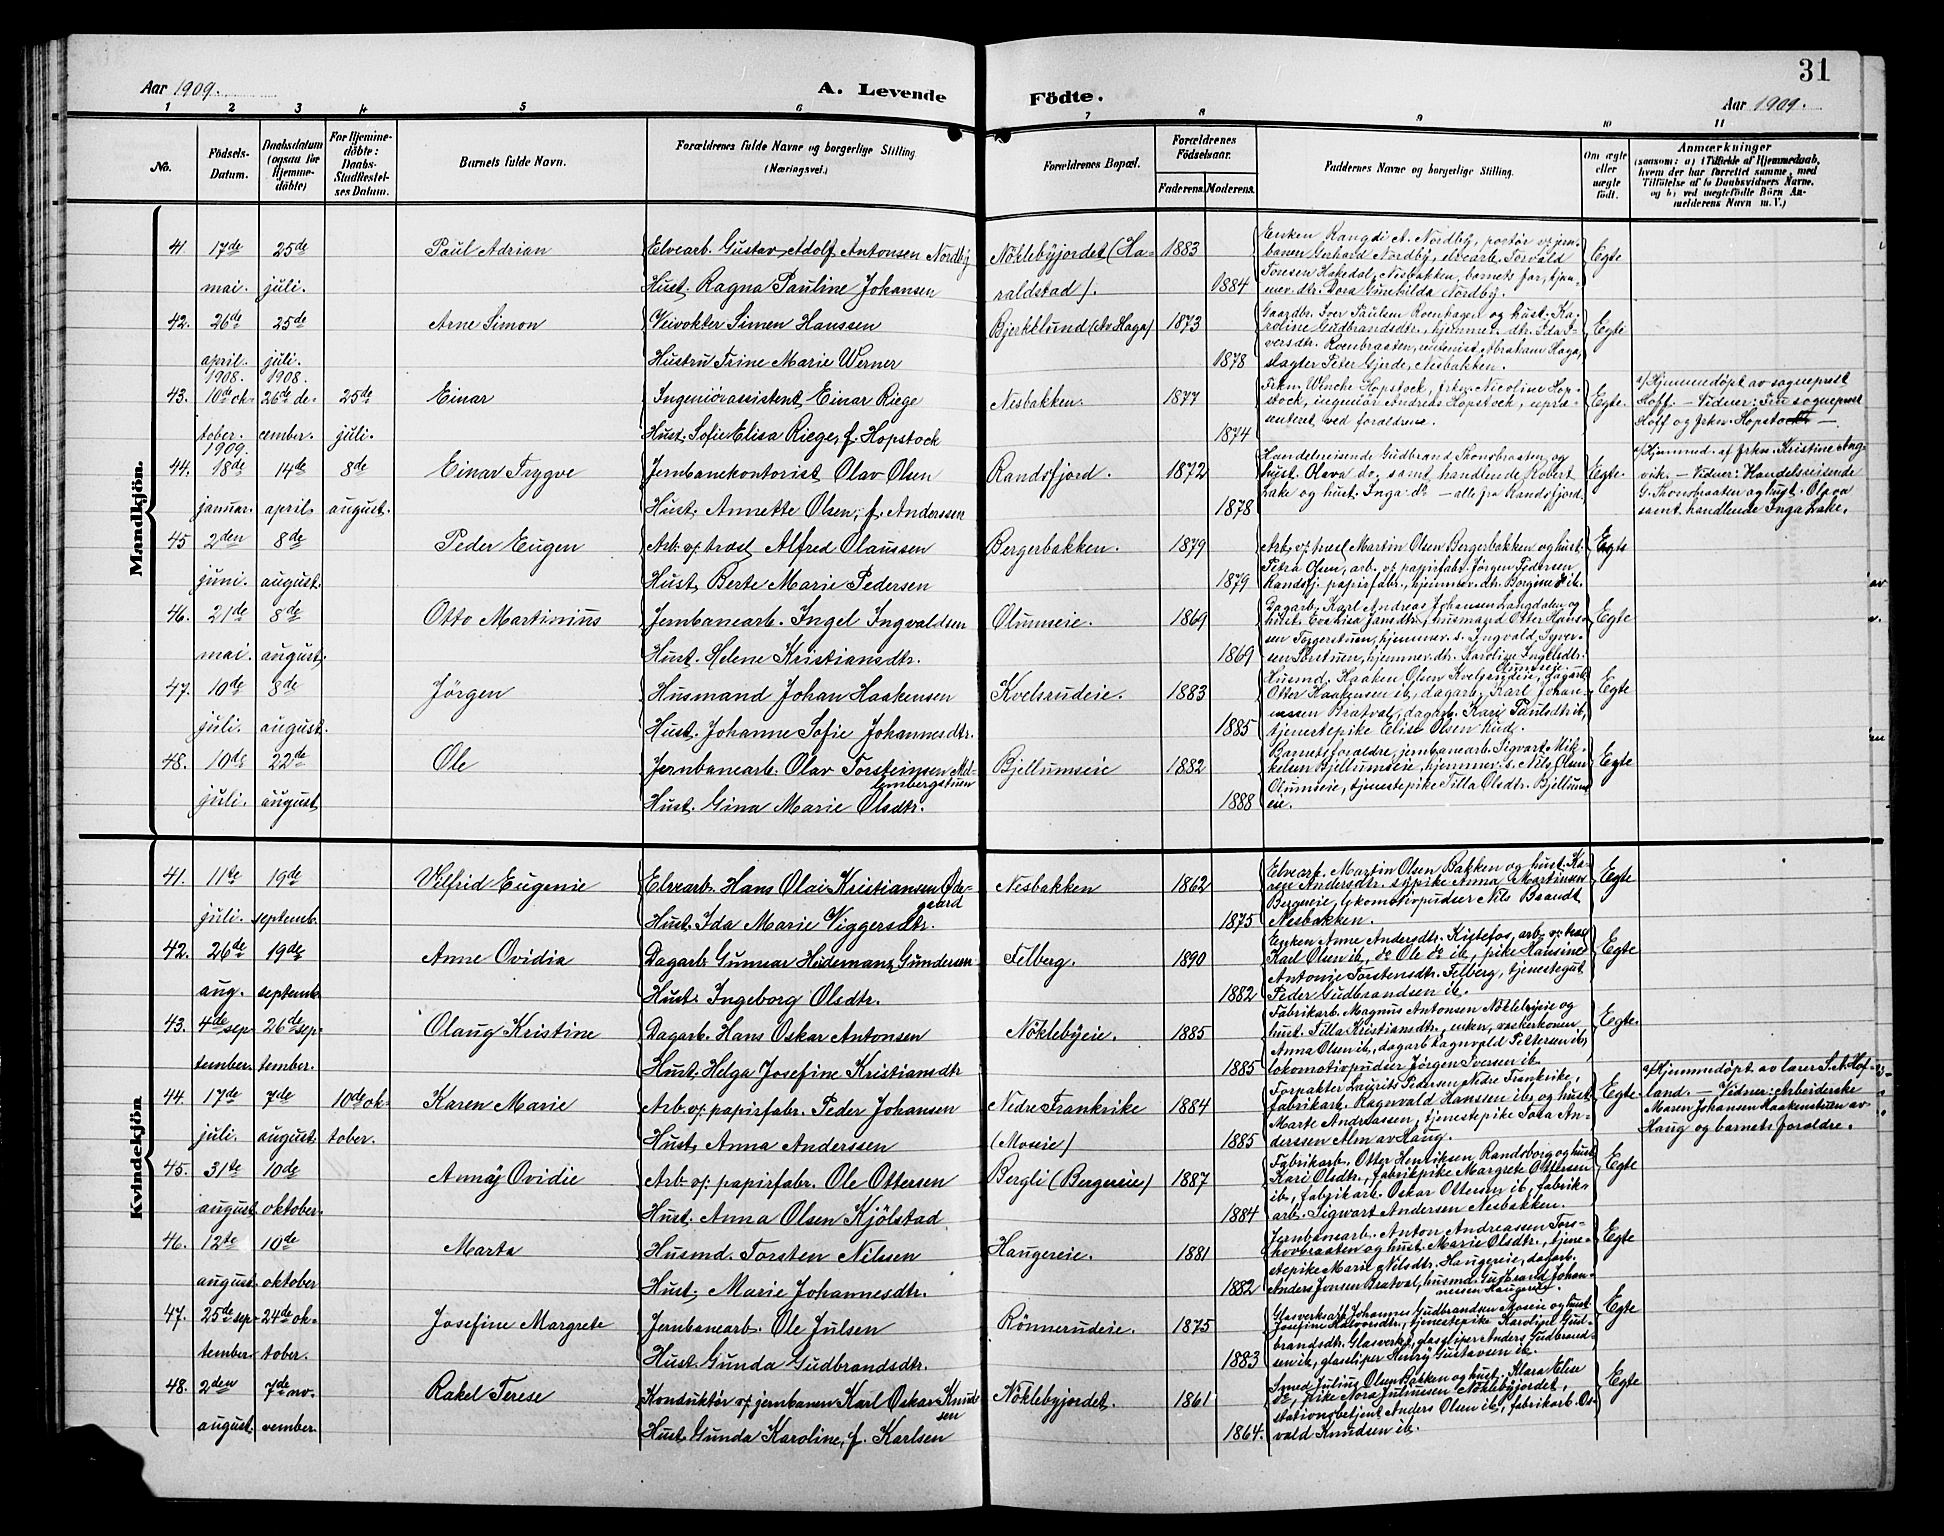 31
Aar 1909.
A. Levende Födte.
Aar 1909.
1 2 3 4 5 6 7 8 9 10 11
No.
Födsels-Datum.
Daabsdatum (ogsaa for Hjemmedöbte)
For Hjemmedöbte: Daabs-Stadfæstelses Datum.
Barnets fulde Navn.
Forældrenes fulde Navne og borgerlige Stilling (Næringsvei.)
Forældrenes Bopæl.
Forældrenes Födselsaar.
Faderens. Moderens.
Faddernes Navne og borgerlige Stilling.
Om ægte eller uægte født.
Anmærkninger (saasom: a) i Tilfælde af Hjemmedaab, hvem der har forrettet samme, med Tilföielse af to Daabsvidners Navne, og b) ved uægtefödte Börn Anmelderens Navn m. V.)
Mandkjön.
41. 17de mai. 25de juli. Paul Adrian
Elvearb. Gustav Adolf Antonsen Nordby
Hust. Ragna Pauline Johansen
Nöklebyjordet (Haraldstad). 1883 1884
Enken Rangdi A. Nordby, portör v. jern-
banen Gerhard Nordby, elvearb. Torvald
Toresen Hakedal, Nesbakken, barnets far, hjem-
mev. dtr. Dora Gunhilda Nordby.
Egte
42. 26de april. 25de juli. Arne Simon
Veivokter Simen Hanssen
Hustru Trine Marie Werner
Bjerkelund (Av Haga) 1873 1878
Gaardbr. Iver Paulsen Roenhagen og hust. Ka-
roline Gudbrandsdtr., hjemmev. dtr. Ida I-
versdtr. Roenbraaten, Abraham Haga,
slagter Peter Gjerde, Nesbakken.
Egte
43. 1908. 10de oktober. 1908. 26de december. 25de juli. Einar
Ingeniörassistent Einar Riege
Hust. Sofie Elisa Riege, f. Hopstock
Nesbakken. 1877 1874
Frkn. Wencke Hopstock, frkn. Nicoline Hop-
stock, ingeniör Andreas Hopstock, repræ-
senteret ved forældrene.
Egte.
a/ Hjemmedöpt av sogneprest
Hoff. — Vidner: Fru sogneprest
Hoff og frkn. Hopstock —
44. 1909. 18de januar. 14de april. 8de august. Einar Trygve
Jernbanekontorist Olav Olsen
Hust. Annette Olsen, f. Anderssen
Randsfjord. 1872 1878
Handelsreisende Gudbrand Thonsbraaten og
hust. Olava do, samt handlende Robert
Lake og hust. Inga do — alle fra Randsfjord.
Egte.
a/ Hjemmed. af frkn. Kristine Ang-
vik. — Vidner: Handelsreisende
G. Thonsbraaten og hust. Olava
samt handlende Inga Lake.
45 2den juni. 8de august. Peder Eugen
Arb. v/ træsl. Alfred Olaussen
Hust. Berte Marie Pedersen
Bergerbakken. 1879 1879
Arb. v/ træsl. Martin Olsen Bergerbakken og hust.
Petra Olsen, arb. v/ papirfabr. Jörgen Pedersen
Randsfj. papirfabr., hjemmev. dtr. Borgine do ib.
Egte
46. 21de mai. 8de august. Otto Martinius
Jernbanearb. Ingel Ingvaldsen
Hust. Helene Kristiansdtr.
Olumseie. 1869 1869
Dagarb. Karl Andreas Johansen Langdalen og
hust. Eva Lisa Jansdtr., husmand Otter Hans-
sen Torgerstuen, hjemmev. s. Ingvald Iver-
sen Torstuen, hjemmev. dtr. Karoline Ingelsdtr.
Olumseie.
Egte
47. 10de juli. 8de august. Jörgen
Husmand Johan Haakensen
Hust. Johanne Sofie Johannesdtr.
Kvelsrudeie. 1883 1885
Husmd. Haaken Olsen Kvelsrudeie, dagarb.
Otter Haakensen ib, dagarb. Karl Johan-
nessen Bratval, dagarb. Kari Paulsdtr ib,
tjenestepike Elise Olsen Rud.
Egte
48. 10de juli. 22de august Ole
Jernbanearb. Olav Torsteinsen Mel-
lembergstuen
Hust. Gina Marie Olsdtr.
Bjellumseie 1882 1888
Barnets forældre, jernbanearb. Sigvart Mik-
kelsen Bjellumseie, hjemmev. s. Nils Olsen
Olumseie, tjenestepike Tilla Olsdtr. Bjellums-
eie.
Egte
Kvindekjön
41. 11te juli. 19de septemb. Vilfrid Eugenie
Elvearb. Hans Olai Kristiansen Öde-
gaard
Hust. Ida Marie Viggersdtr.
Nesbakken 1862 1875
Elvearb. Martin Olsen Bakken og hust. Ka-
ren Andersdtr. sypike Anna Martinsen
Bergereie, lokomotivpudser Nils Brandt
Nesbakken.
Egte
42. 26de aug. 19de septemb. Anne Ovidia
Dagarb. Gunnar Hedemann Gundersen
Hust. Ingeborg Olsdtr.
Felberg. 1890 1882
Enken Anne Andersdtr. Kistefos, arb. v/ træsl.
Karl Olsen ib, do Ole do ib, pike Hansine
Antonie Torstensdtr. Felberg, tjenestegut
Peder Gudbrandsen ib.
Egte
43. 4de september. 26de september. Olaug Kristine
Dagarb. Hans Oskar Antonsen
Hust. Helga Josefine Kristiansdtr
Nöklebyeie. 1885 1885
Fabrikarb. Magnus Antonsen Nöklebyeie og
hust. Tilla Kristiansdtr., enken, vaskerkonen
Anna Olsen ib, dagarb. Ragnvald Pettersen ib,
lokomotivpudser Jörgen Iversen ib.
Egte.
44. 17de juli. 7de august 10de oktober. Karen Marie
Arb. v/ papirfabr. Peder Johansen
Hust. Anna Anderssen
Nedre Frankrike (Moseie) 1884 1885
Forpakter Laurits Pedersen Nedre Frankrike,
fabrikarb. Ragnvald Hansen ib. og hust.
Marte Andreassen, tjenestepike Tora An-
derssen Alm av Haug.
Egte.
a/ Hjemmedöpt av lærer S. A. Hof-
land. — Vidner: Arbeiderske
Maren Johansen Haakenstuen av
Haug og barnets forældre.
45. 31te august 10de oktober. Annäy Ovidie
Arb. v/ papirfabr. Ole Ottersen
Hust. Anna Olsen Kjölstad
Bergli (Bergereie) 1887 1884
Fabrikarb. Otter Henriksen Randsborg og hust.
Kari Olsdtr., fabrikpike Margrete Ottersen
ib, fabrikarb. Oskar Ottersen ib, fabrik-
arb. Sigwart Andersen Nesbakken.
Egte
46. 12te august. 10de oktober Marta
Husmd. Torsten Nilsen
Hust. Marie Johannesdtr.
Haugereie. 1881 1882
Jernbanearb. Anton Andreassen Tors-
hovbraaten og hust. Marie Olsdtr., tjene-
stepike Marie Nilsdtr. Haugereie, dagarb.
Anders Jonsen Bratval, husmd. Gudbrand Johan-
nessen Haugereie.
Egte
47. 25de september. 24de oktober. Josefine Margrete
Jernbanearb. Ole Julsen
Hust. Gunda Gudbrandsdtr.
Rönnerudeie. 1875 1883
Glasverksarb. Johannes Gudbrandsen Moseie og hust
Josefine Halvorsdtr., tjenestepike Karoline Gud-
brandsdtr. Glasverket, glassliper Anders Gudbrand-
sen ib, glassliper Henry Gustavsen ib.
Egte
48. 2den august. 7de november. Rakel Terese
Konduktör v/ jernbanen Karl Oskar Knud-
sen
Hust. Gunda Karoline, f. Karlsen
Nöklebyjordet. 1861 1864.
Smed Julius Olsen Bakken og hust. Klara Elise
do, pike Nora Juliussen Nöklebyjordet,
stationsbetjent Anders Olsen ib, fabrikarb. Os-
vald Knudsen ib.
Egte